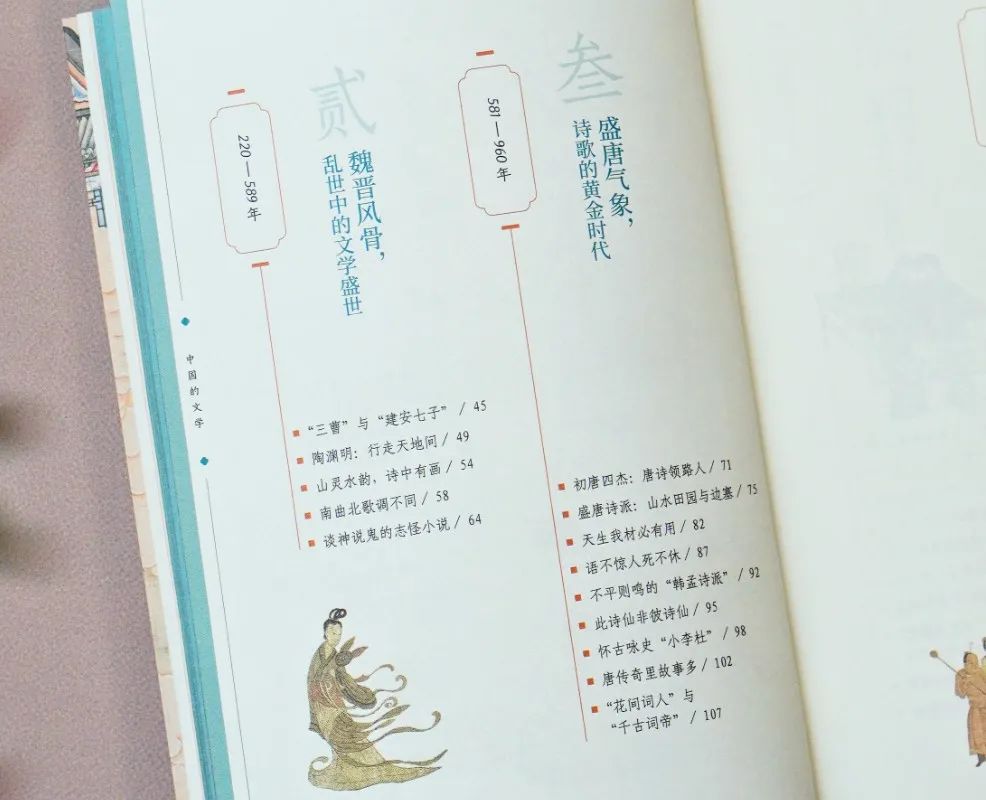 中国的文学
贰
220—589年
魏晋风骨,
乱世中的文学盛世
“三曹”与“建安七子” / 45
陶渊明：行走天地间 / 49
山灵水韵，诗中有画 / 54
南曲北歌调不同 / 58
谈神说鬼的志怪小说 / 64
叁
581—960年
盛唐气象,
诗歌的黄金时代
初唐四杰：唐诗领路人 / 71
盛唐诗派：山水田园与边塞 / 75
天生我材必有用 / 82
语不惊人死不休 / 87
不平则鸣的“韩孟诗派” / 92
此诗仙非彼诗仙 / 95
怀古咏史“小李杜” / 98
唐传奇里故事多 / 102
“花间词人”与
“千古词帝” / 107